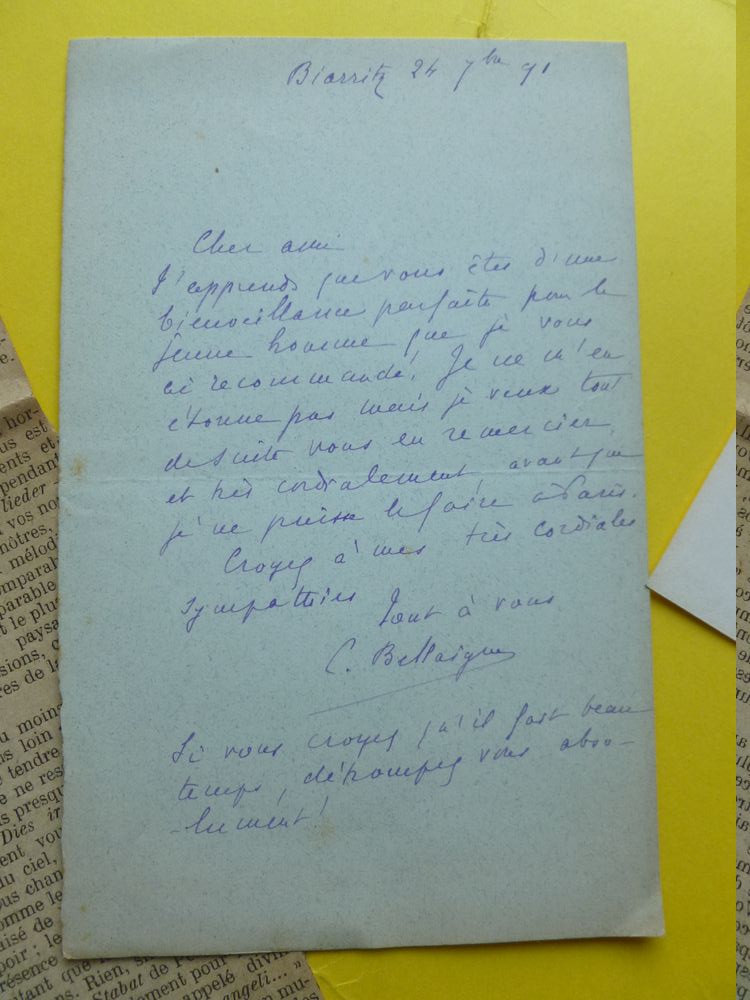 Biarritz 24 7bre 91
Cher ami
J'apprends que vous êtes d'une
bienveillance parfaite pour le
jeune homme que je vous
ai recommandé. Je ne m'en
étonne pas mais je veux tout
de suite vous en remercier,
et très cordialement, avant que
je ne puisse le faire à Paris.
Croyez à mes très cordiales
sympathies
Tout à vous
C. Bellaigue
Si vous croyez qu'il fait beau
temps, détrompez vous abso-
-lument!
hor-
us est
ents et
pendant
lieder
vos no
nôtres,
mélod
omparab
parable
t le plu
paysa
sions, c
res de la
u moins
ns loin
tendre
e ne res
s presqu
Dies ir
ent vou
u ciel,
ous chan
omme le
aisé de
poir ; le
résence
tant que
ns. Rien, si
Stabat de Pe
lement pour
appelé divin
angeli... »
un mu-